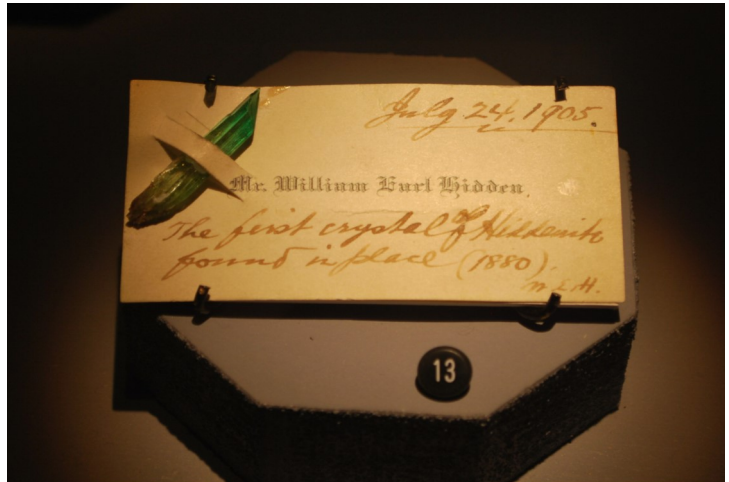 July 24, 1905.
Mr. William Earl Hidden
The first crystal of Hiddenite
found in place (1880).
W.E.H.
13